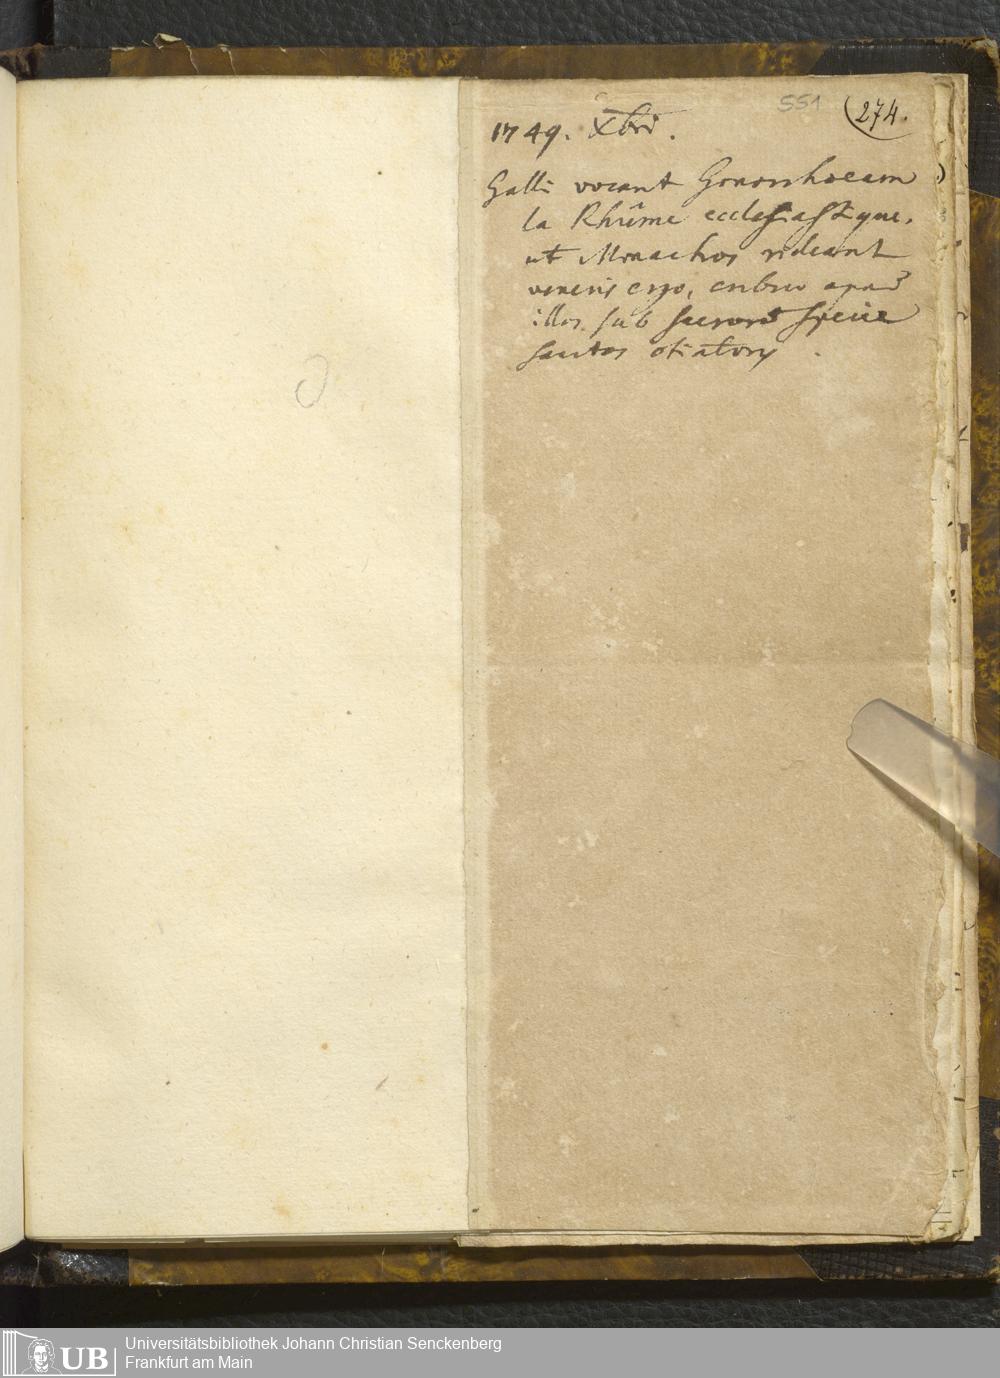 551 (274.
1749. Xbri.
Galli vocant Gonorrhoeam
la Rhûme ecclesiastique,
ut Monachos rideant
veneris ergo, crebro apud
illos sub specie
otiatory.
UB
Universitätsbibliothek Johann Christian Senckenberg
Frankfurt am Main